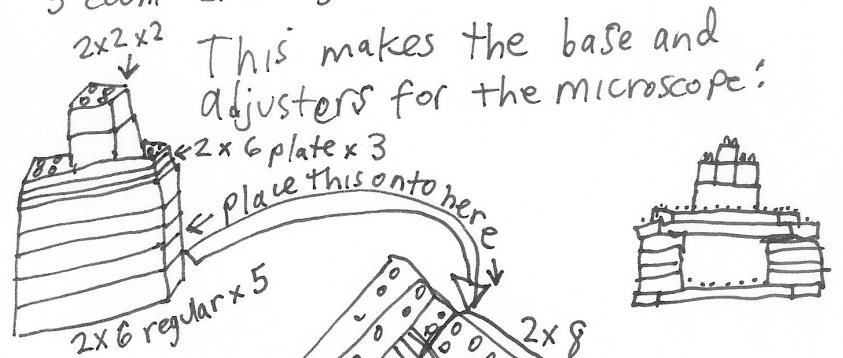 2x2x2
This makes the base and
adjusters for the microscope:
2x6 plate x 3
Place this onto here
2x6 regular x 5
2x8